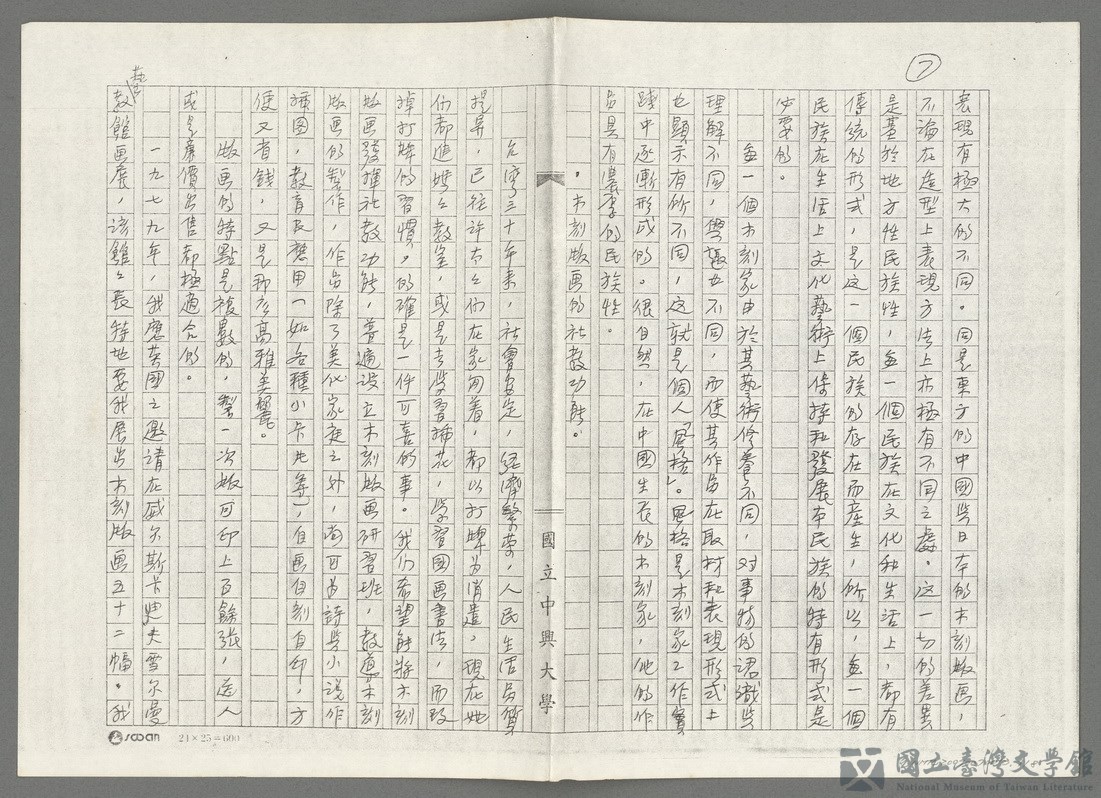 7
表現有極大的不同。同是東方的中國與日本的木刻版画，
不論在造型上表現方法上亦極有不同之處。這一切的差異
是基於地方性民族性，每一個民族在文化和生活上，都有
傳統的形式，是這一個民族的存在而產生，所以，每一個
民族在生活上文化藝術上保持和發展本民族的特有形式是
必要的。
每一個木刻家由於其藝術修養不同，对事物的認識與
理解不同，興趣也不同，而使其作品在取材和表現形式上
也顯示有所不同，這就是個人「風格」。風格是木刻家工作實
踐中逐漸形成的。很自然，在中國生長的木刻家，他的作
品具有濃厚的民族性。
，木刻版画的社教功能。
台灣三十年來，社會安定，經濟繁榮，人民生活品質
提昇，已往許太太们在家闲着，都以打牌为消遣。現在她
们都進媽媽教室，或是去学習插花，学習國画書法，而改
掉打牌的習慣。的確是一件可喜的事。我们希望能將木刻
版画發揮社教功能，普遍設立木刻版画研習班，教導木刻
版画的製作，作品除了美化家庭之外，尚可为詩與小說作
插图，教育及應用(如各種小卡片等)，自画自刻自印，方
便又省錢，又是那麽高雅美麗。
版画的特點是複數的，製一次版可印上百餘張，送人
或是廉價出售都極適合的。
一九七九年，我應英國之邀請在威尔斯卡迪夫雪尔曼
藝
教館画展，該館館長特地要我展出木刻版画五十二幅。我
國立中興大學
sooan
24×25=600
國立臺灣文學館
National Museum of Taiwan Literature